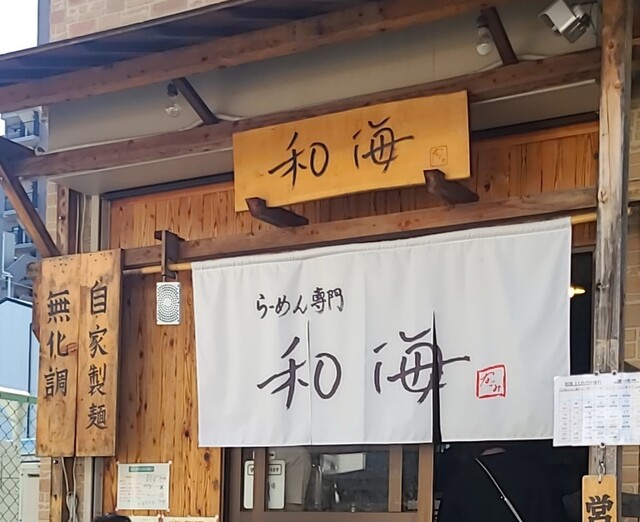 和海
らーめん専門
和海
なごみ
自家製麺
無化調
営